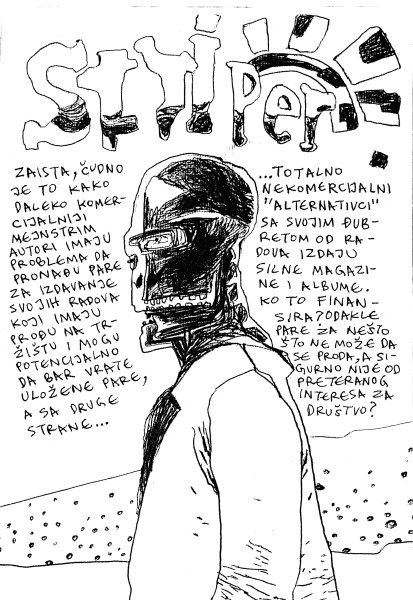 Striper
ZAISTA, ČUDNO
JE TO KAKO
DALEKO KOMER-
CIJALNIJI
MEJNSTRIM
AUTORI IMAJU
PROBLEMA DA
PRONAĐU PARE
ZA IZDAVANJE
SVOJIH RADOVA
KOJI IMAJU
PROĐU NA TR-
ŽIŠTU I MOGU
POTENCIJALNO
DA BAR VRATE
ULOŽENE PARE,
A SA DRUGE
STRANE...
...TOTALNO
NEKOMERCIJALNI
"ALTERNATIVCI"
SA SVOJIM ĐUB-
RETOM OD RA-
DOVA IZDAJU
SILNE MAGAZI-
NE I ALBUME.
KO TO FINAN-
SIRA? ODAKLE
PARE ZA NEŠTO
ŠTO NE MOŽE DA
SE PRODA, A SI-
GURNO NIJE OD
PRETERANOG
INTERESA ZA
DRUŠTVO?